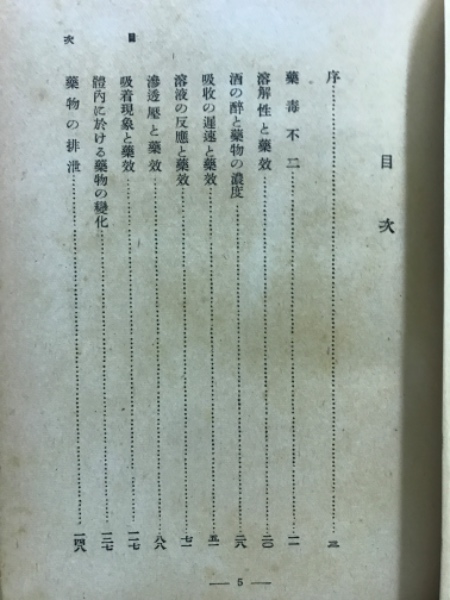 目次
序……三
藥毒不二……一一
溶解性と藥效……二〇
酒の醉と藥物の濃度……二八
吸收の遲速と藥效……五一
溶液の反應と藥效……七一
滲透壓と藥效……八八
吸着現象と藥效……一一七
體內に於ける藥物の變化……一二七
藥物の排泄……一四八
目次
— 5 —